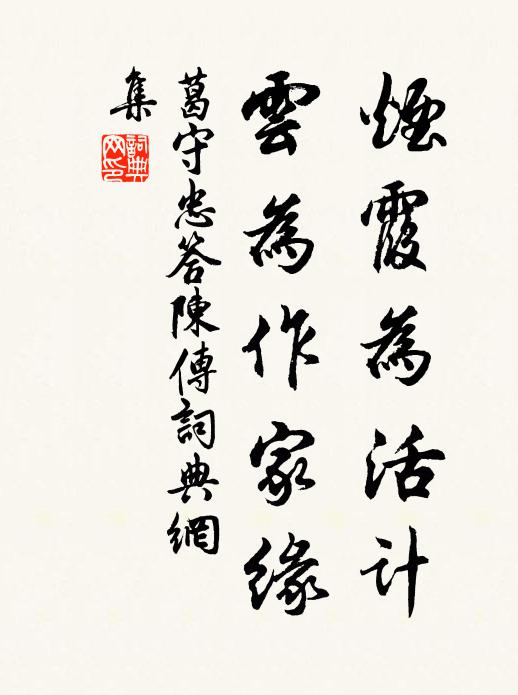 煙霞為活計
雲為作家緣
葛守忠答陳傳詞典網
集
詞典
網印